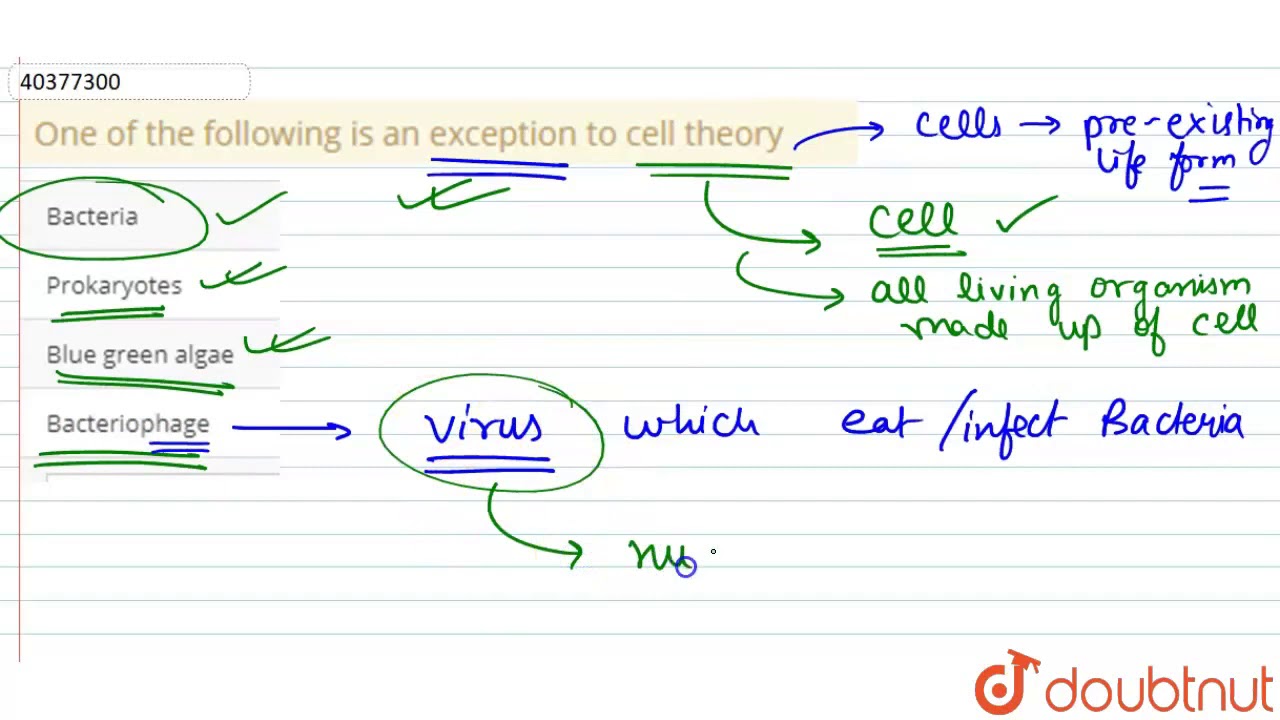 40377300
One of the following is an exception to cell theory
cells → pre-existing
life form
Bacteria
cell
Prokaryotes
all living organism
made up of cell
Blue green algae
Bacteriophage → virus which eat/infect Bacteria
nu
doubtnut